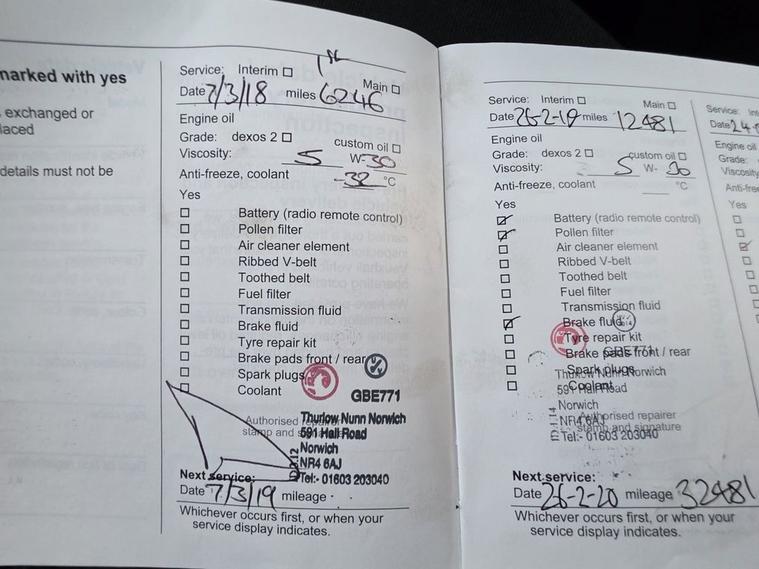 narked with yes
exchanged or
laced
details must not be
Service: Interim
Main
Date 7/3/18 miles 6246
Engine oil
Grade: dexos 2 custom oil
Viscosity: 5 W-30
Anti-freeze, coolant -32 °C
Yes
Battery (radio remote control)
Pollen filter
Air cleaner element
Ribbed V-belt
Toothed belt
Fuel filter
Transmission fluid
Brake fluid
Tyre repair kit
Brake pads front / rear
Spark plugs
Coolant
GBE771
Authorised repairer
stamp and
Thurlow Nunn Norwich
591 Hall Road
Norwich
NR4 6AJ
Tel:- 01603 203040
Next service:
Date 7/3/19 mileage
Whichever occurs first, or when your
service display indicates.
Service: Interim
Main
Date 26-2-19 miles 12481
Engine oil
Grade: dexos 2 custom oil
Viscosity: 5 W- 30
Anti-freeze, coolant °C
Yes
Battery (radio remote control)
Pollen filter
Air cleaner element
Ribbed V-belt
Toothed belt
Fuel filter
Transmission fluid
Brake fluid
Tyre repair kit
Brake pads front / rear
GBE771
Spark plugs
Coolant
Thurlow Nunn Norwich
591 Hall Road
Norwich
NR4 6AJ
Tel:- 01603 203040
Authorised repairer
stamp and signature
Next service:
Date 26-2-20 mileage 32481
Whichever occurs first, or when your
service display indicates.
Service: Int
Date 24
Engine oil
Grade:
Viscosity
Anti-free
Yes